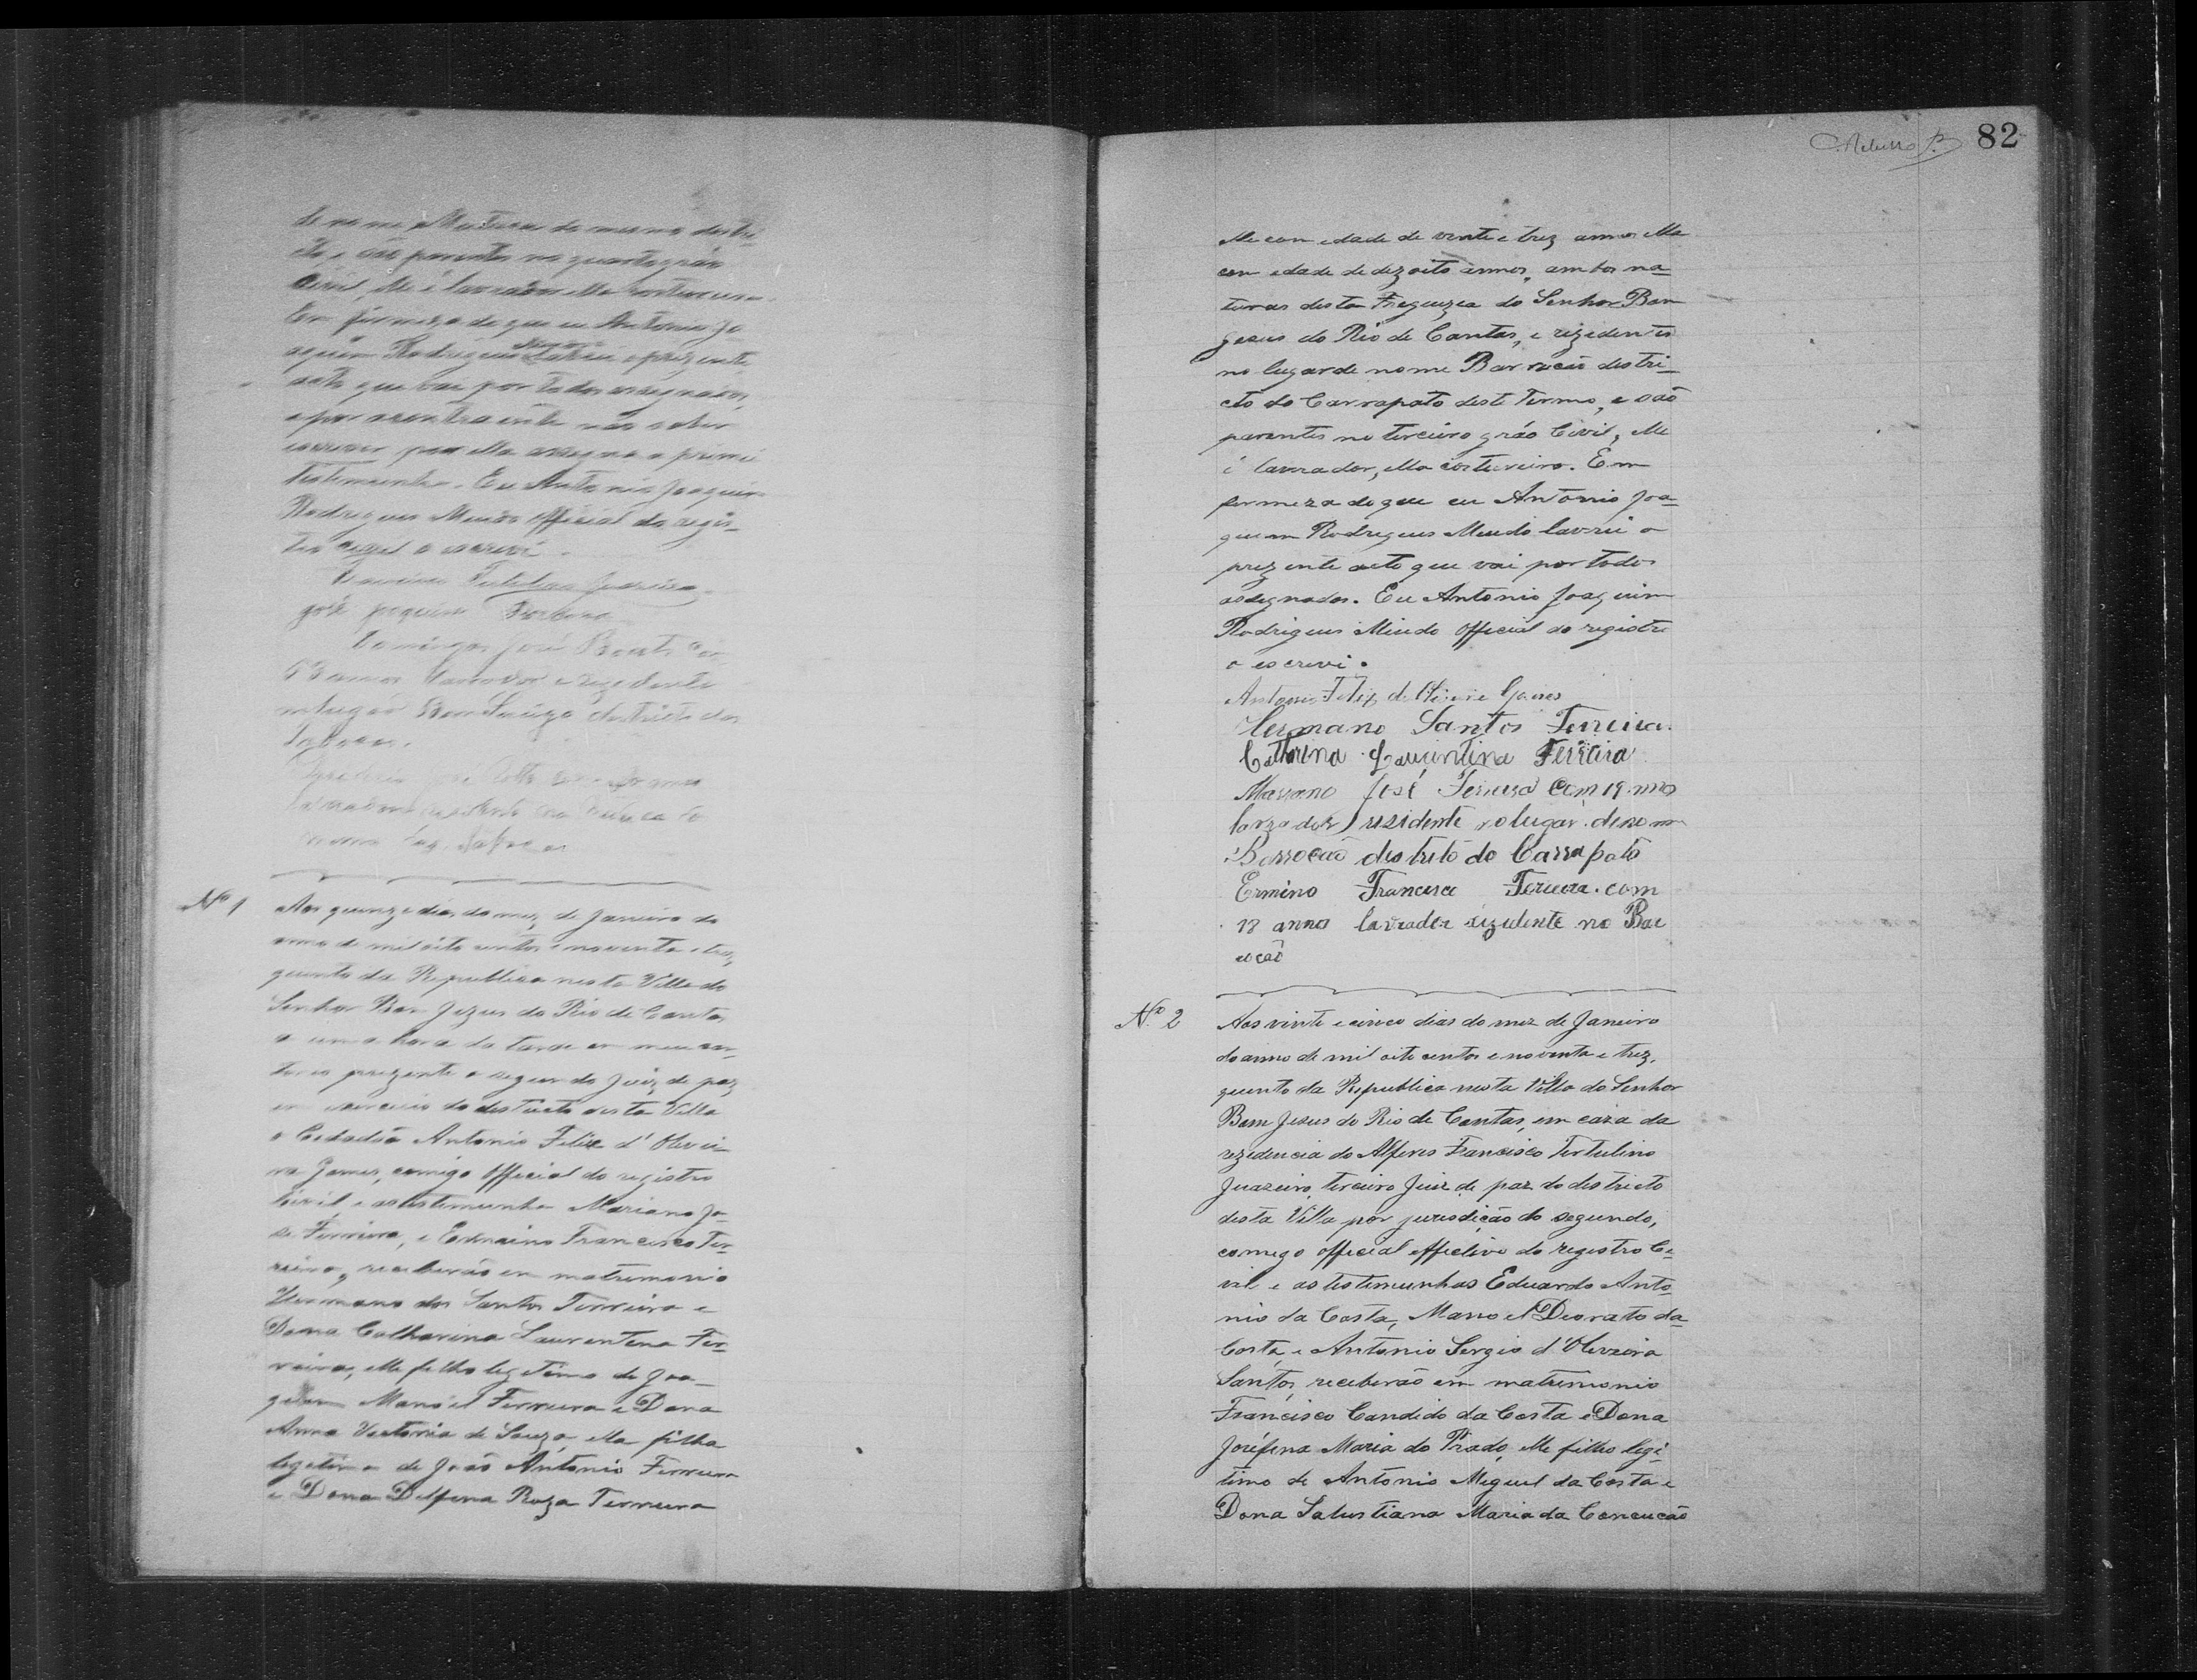 de nome Mutuca do mesmo distri-
cto, e são parentes no quarto gráo
Civil, elle é lavrador ella costureira.
Em firmeza do que eu Antonio Jo
aquim Rodrigues lavrei o prezente
acto que vai por todos assignados,
e por a contraente não saber
escrever por ella assigna a primei
testimunha. Eu Antonio Joaquim
Rodrigues Mindo Official do regis-
tro o escrevi.
José Joaquim
Domingos José
63 annos lavrador e rezidente
no lugar districto das
José
lavrador rezidente
mesmo
Nº 1
Aos quinze dias do mez de Janeiro do
anno de mil oito centos e noventa e trez,
quinto da Republica nesta Villa do
Senhor Bom Jezus do Rio de Contas
a uma hora da tarde em meu car-
torio prezente o segundo Juiz de paz
em exercicio do districto desta Villa
o Cidadão Antonio Felix d'Olivei-
ra Gomes, comigo Official do registro
Civil, e as testemunha Mariano Jo-
sé Ferreira, e Ermino Francisco Fer-
reira, receberão em matrimonio
Hermano dos Santos Ferreira e
Dona Catharina Laurentina Fer-
reira, elle filho legetimo de Joa-
quim Manoel Ferreira e Dona
Anna Victoria de Souza, ella filha
legetima de João Antonio Ferreira
e Dona Delfina Roza Ferreira
82
Elle com edade de vinte e trez annos Ella
com edade de dezoito annos, ambos na-
turaes desta Freguezia do Senhor Bom
Jesus do Rio de Contas, e rezidentes
no lugar de nome Barrocão distri-
cto do Carrapato deste Termo, e são
parentes no terceiro gráo Civil, Elle
é lavrador, ella costureira. Em
firmeza do que eu Antonio Joa-
quim Rodrigues Mindo lavrei o
prezente acto que vai por todos
assignados. Eu Antonio Joaquim
Rodrigues Mindo Official do registro
o escrevi.
Antonio Felix de Oliveira Gomes
Hermano Santos Ferreira.
Catharina Laurintina Ferreira
Mariano José Ferreira com 19 annos
lavrador residente no lugar denom
Barrocão destrito do Carrapato
Ermino Francisco Ferreira com
18 annos lavrador rizidente no Bar
rocão
Nº 2
Aos vinte e cinco dias do mez de Janeiro
do anno de mil oito centos e noventa e trez,
quinto da Republica nesta Villa do Senhor
Bom Jesus do Rio de Contas, em caza da
rezidencia do Alferes Francisco Tertulino
Juazeiro, terceiro Juiz de paz do districto
desta Villa por jurisdição do segundo,
comigo official effectivo do registro Ci-
vil e as testimunhas Eduardo Anto-
nio da Costa, Manoel Deorato da
Costa e Antonio Sergio d'Oliveira
Santos, receberão em matrimonio
Francisco Candido da Costa e Dona
Jozéfina Maria do Prado, elle filho legi-
timo de Antonio Miguel da Costa e
Dona Salustiana Maria da Conceicão